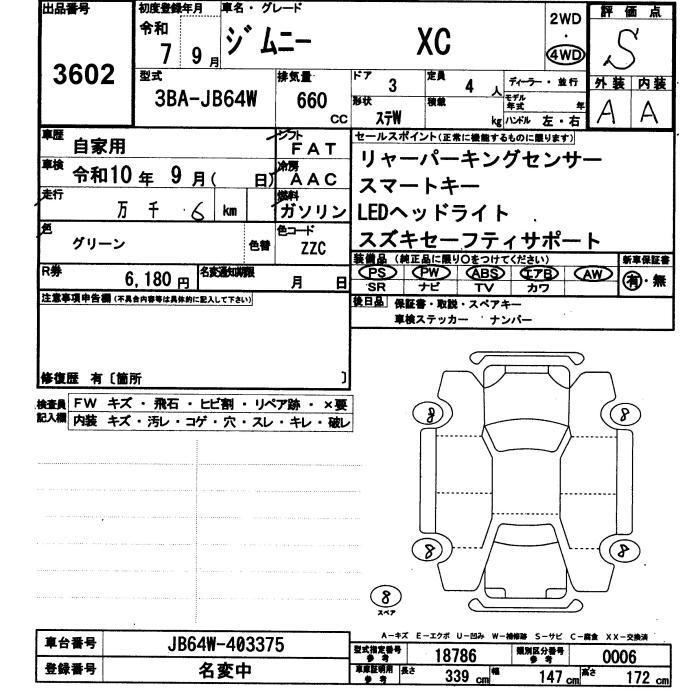 出品番号
3602
初度登録年月
令和 7 9月
車名・グレード
ジムニー XC
2WD
・
4WD
評価点
S
外装 内装
A A
型式
3BA-JB64W
排気量
660 CC
ドア
3
形状
ステW
定員
4 人
積載
kg
ディーラー・並行
モデル年式 年
ハンドル 左・右
車歴
自家用
車検
令和10年 9月( 日)
走行
万 千 6 km
色
グリーン
色替
シフト
FAT
冷房
AAC
燃料
ガソリン
色コード
ZZC
R券
6,180円
名変通知期限
月 日
セールスポイント(正常に機能するものに限ります)
リャーパーキングセンサー
スマートキー
LEDヘッドライト
スズキセーフティサポート
装備品 (純正品に限り○をつけてください)
PS PW ABS エアB AW
SR ナビ TV カワ
新車保証書
有・無
後日品 保証書・取説・スペアキー
車検ステッカー ナンバー
注意事項申告欄(不具合内容等は具体的に記入して下さい)
修復歴 有〔箇所 〕
検査員記入欄
FW キズ・飛石・ヒビ割・リペア跡・×要
内装 キズ・汚レ・コゲ・穴・スレ・キレ・破レ
8 8
8 8
8
スペア
A-キズ E-エクボ U-凹み W-補修跡 S-サビ C-腐食 XX-交換済
車台番号
JB64W-403375
登録番号
名変中
型式指定番号参考
18786
類別区分番号参考
0006
車庫証明用参考
長さ 339cm 幅 147cm 高さ 172cm